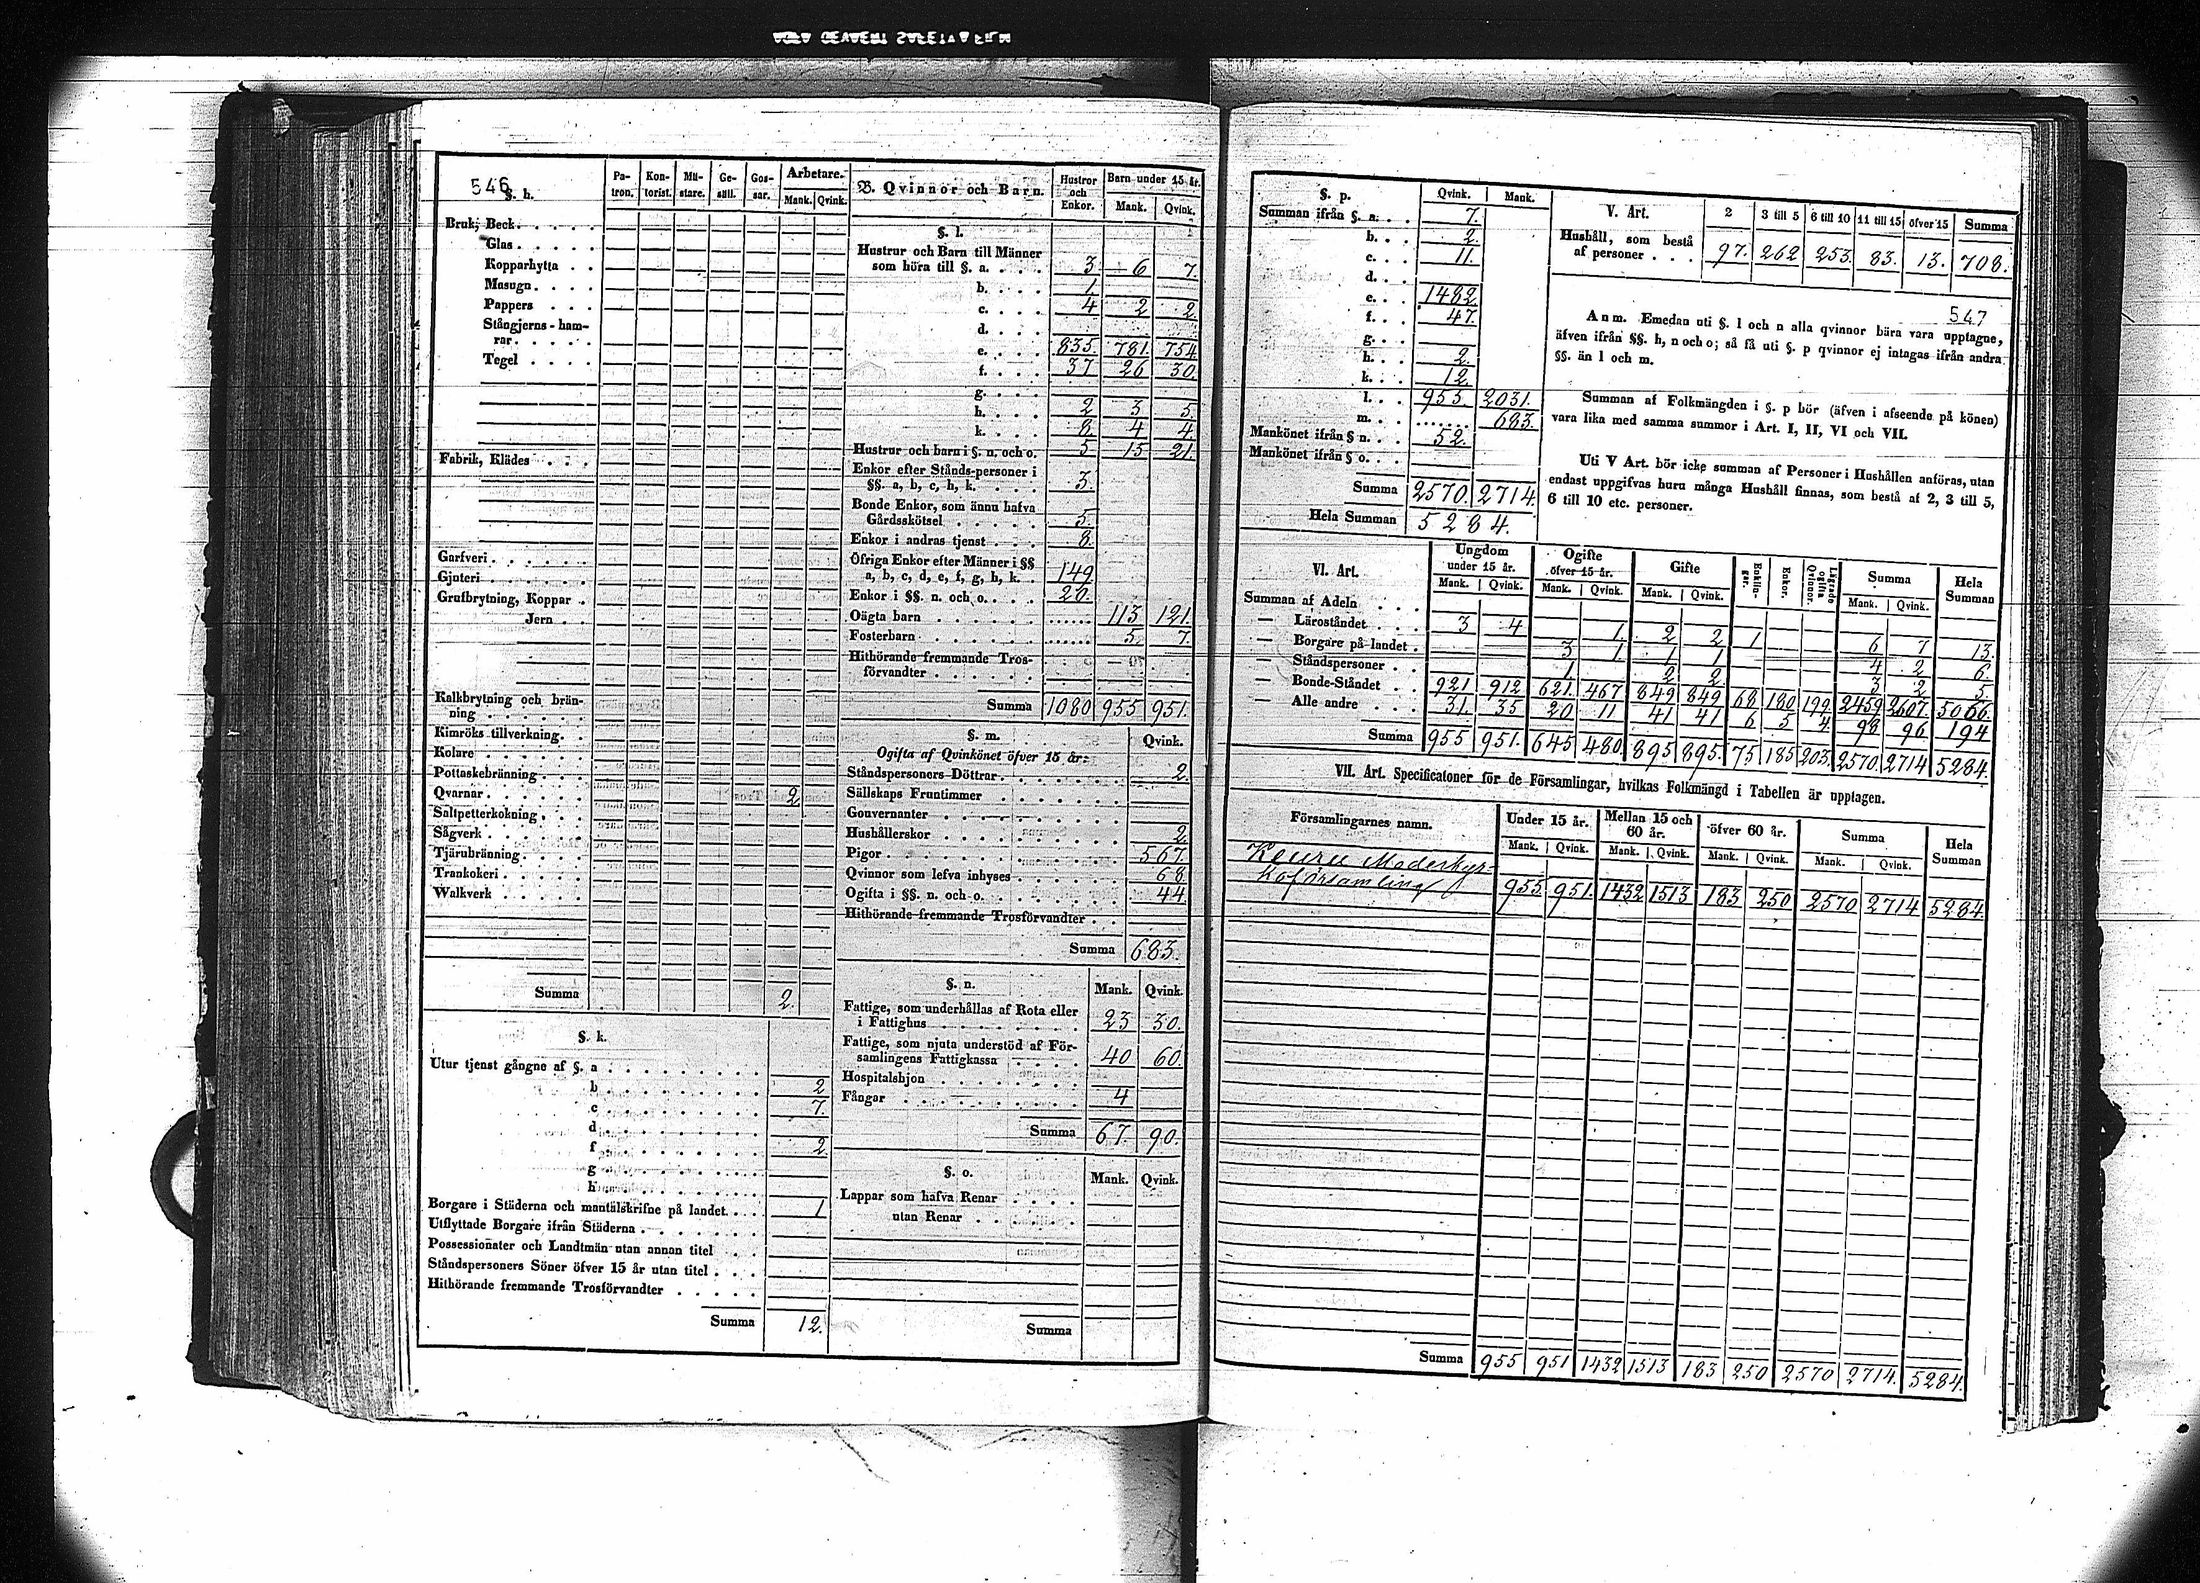 546
§. h.
Pa-tron. Kon-torist. Mä-stare. Ge-säll. Gos-sar. Arbetare. Mank. Qvink.
Bruk, Beck
Glas
Kopparhytta
Masugn
Pappers
Stångjerns-ham-
rar
Tegel
Fabrik, Klädes
Garfveri
Gjuteri
Grufbrytning, Koppar
Jern
Kalkbrytning och brän-
ning
Kimröks tillverkning
Kolare
Pottaskebränning
Qvarnar 2
Saltpetterkokning
Sågverk
Tjärubränning
Trankokeri
Walkverk
Summa 2.
§. k.
Utur tjenst gångne af §. a
b 2
c 7.
d
f 2
g
h
Borgare i Städerna och mantalskrifne på landet 1
Utflyttade Borgare ifrån Städerna
Possessionater och Landtmän utan annan titel
Ståndspersoners Söner öfver 15 år utan titel
Hithörande fremmande Trosförvandter
Summa 12.
B. Qvinnor och Barn. Hustror och Enkor. Barn under 15 år. Mank. Qvink.
§. l.
Hustrur och Barn till Männer
som höra till §. a. 3 6 7.
b. 1
c. 4 2 2
d.
e. 835. 781. 754
f. 37 26 30.
g.
h. 2 3 5.
k. 8 4 4
Hustrur och barn i §. n. och o. 5 15 21.
Enkor efter Stånds-personer i
§§. a, b, c, h, k. 3.
Bonde Enkor, som ännu hafva
Gårdsskötsel 5.
Enkor i andras tjenst 8.
Öfriga Enkor efter Männer i §§
a, b, c, d, e, f, g, h, k. 149
Enkor i §§. n. och o. 20.
Oägta barn 113 121.
Fosterbarn 5. 7.
Hithörande fremmande Tros-
förvandter
Summa 1080 955 951.
§. m.
Ogifta af Qvinkönet öfver 15 år: Qvink.
Ståndspersoners Döttrar 2.
Sällskaps Fruntimmer
Gouvernanter
Hushållerskor 2.
Pigor 567.
Qvinnor som lefva inhyses 68
Ogifta i §§. n. och o. 44
Hithörande fremmande Trosförvandter
Summa 683.
§. n. Mank. Qvink.
Fattige, som underhållas af Rota eller
i Fattighus 23 30.
Fattige, som njuta understöd af För-
samlingens Fattigkassa 40 60.
Hospitalshjon
Fångar 4
Summa 67. 90.
§. o. Mank. Qvink.
Lappar som hafva Renar
utan Renar
Summa
§. p. Qvink. Mank.
Summan ifrån §. a. 7.
b. 2.
c. 11.
d.
e. 1482
f. 47.
g.
h. 2.
k. 12.
l. 955. 2031.
m. 683.
Mankönet ifrån § n. 52.
Mankönet ifrån § o.
Summa 2570. 2714.
Hela Summan 5284.
V. Art. 2 3 till 5 6 till 10 11 till 15 öfver 15 Summa
Hushåll, som bestå
af personer 97. 262 253. 83. 13. 708.
547
Anm. Emedan uti §. l och n alla qvinnor bära vara upptagne,
äfven ifrån §§. h, n och o; så få uti §. p qvinnor ej intagas ifrån andra
§§. än l och m.
Summan af Folkmängden i §. p bör (äfven i afseende på könen)
vara lika med samma summor i Art. I, II, VI och VII.
Uti V Art. bör icke summan af Personer i Hushållen anföras, utan
endast uppgifvas huru många Hushåll finnas, som bestå af 2, 3 till 5,
6 till 10 etc. personer.
VI. Art. Ungdom under 15 år. Ogifte öfver 15 år. Gifte Enklin-gar. Enkor. Lägrade ogifta Qvinnor. Summa Hela Summan
Mank. Qvink. Mank. Qvink. Mank. Qvink. Mank. Qvink.
Summan af Adeln
— Läroståndet 3 4 1. 2 2 1 6 7 13.
— Borgare på landet 3 1. 1 1 4 2 6.
— Ståndspersoner 1 2 2 3 2 5.
— Bonde-Ståndet 921 912 621. 467 849 849 68 180 199 2459 2607. 5066.
— Alle andre 31. 35 20 11 41 41 6 5 4 98 96 194
Summa 955 951. 645 480. 895 895. 75 185 203. 2570 2714 5284.
VII. Art. Specificatoner för de Församlingar, hvilkas Folkmängd i Tabellen är upptagen.
Församlingarnes namn. Under 15 år. Mellan 15 och 60 år. öfver 60 år. Summa Hela Summan
Mank. Qvink. Mank. Qvink. Mank. Qvink. Mank. Qvink.
Keuru Moderkyr-
koförsamling 955. 951. 1432 1513 183 250 2570 2714 5284.
Summa 955 951 1432 1513 183 250 2570 2714. 5284.